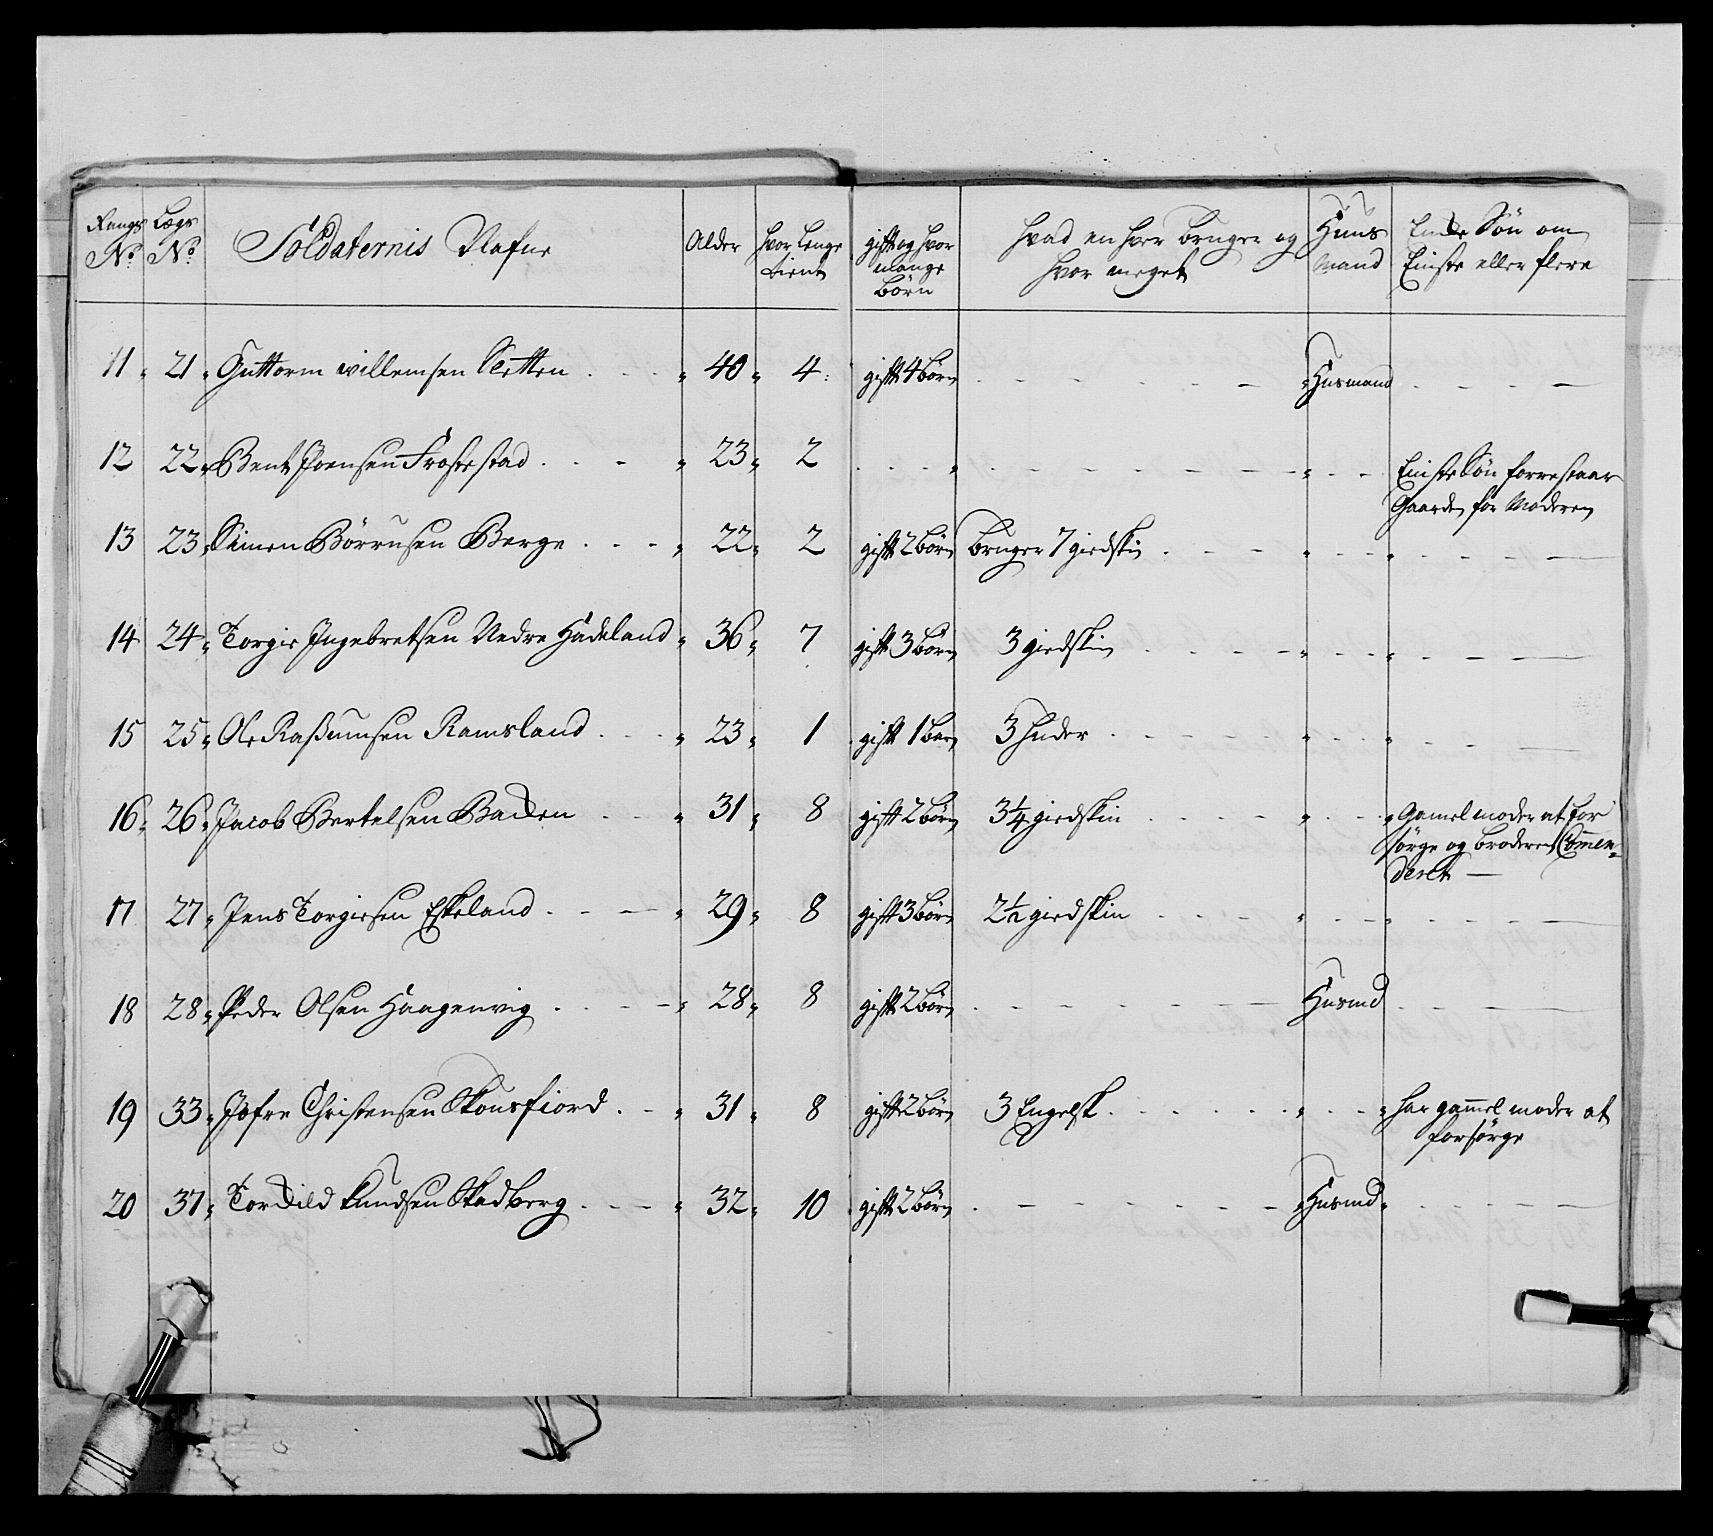 Rangs No. Lægs No. Soldaternis Nafne Alder hvor lenge tient gift og hvor mange Børn hvad en hver bruger og hvor meget Huus Mand Ende Søn om Einste eller flere
11 21 Guttorm willemsen Sletten 40 4 gift 4 Børn Husmand
12 22 Bent Joensen Frøstestad 23 2 Einste Søn forrestaar
Gaarden for Moderen
13 23 Simen Børrusen Berge 22 2 gift 2 børn bruger 7 giedskin
14 24 Torgie Ingebretsen Nedre Hådeland 36 7 gift 3 børn 3 giedskin
15 25 Ole Raßumsen Ramsland 23 1 gift 1 barn 3 huder
16 26 Jacob Bertelsen Badden 31 8 gift 2 børn 3 1/4 giedskin Gamel moder at for
sørge og broderen Commen-
deret
17 27 Jens Torgiesen Eskeland 29 8 gift 3 børn 2 1/2 giedskin
18 28 Peder Olsen Haagenvig 28 8 gift 2 børn Husmd
19 33 Jofre Christensen Skousfiord 31 8 gift 2 børn 3 Engelsk har gammel moder at
forsørge
20 37 Tordild Knudsen Skadberg 32 10 gift 2 børn Husmd